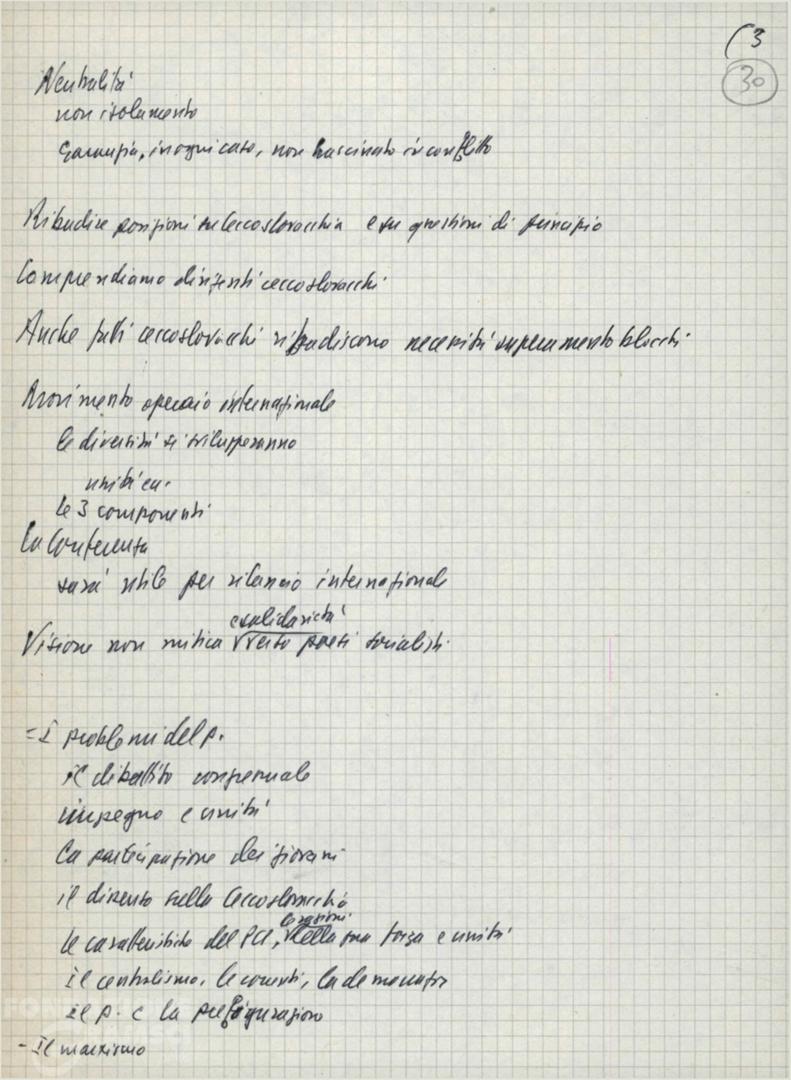 (3
30
Neutralità
non isolamento
Garanzia, in ogni caso, non trascinato in conflitto
Ribadire posizioni su Cecoslovacchia e su questioni di principio
Comprendiamo dirigenti cecoslovacchi
Anche tutti cecoslovacchi ribadiscono necessità superamento blocchi
Movimento operaio internazionale
le diversità si svilupperanno
unità
le 3 componenti
La Conferenza
sarà utile per rilancio internazionale
e solidarietà
Visione non mitica verso paesi socialisti.
- I problemi del p.
il dibattito congressuale
impegno e unità
La partecipazione dei giovani
il dissenso sulla Cecoslovacchia
le ragioni
le caratteristiche del PCI, della sua forza e unità
Il centralismo, le correnti, la democrazia
il p. e la prefigurazione
- Il marxismo
FON